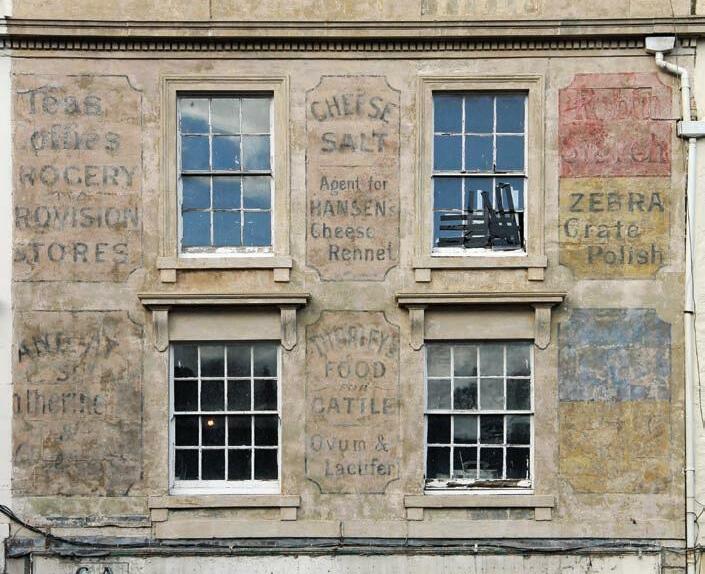 Teas
offies
ROCERY
ROVISION
STORES
CHEESE
SALT
Agent for
HANSENs
Cheese
Rennet
Robin
Starch
ZEBRA
Grate
Polish
THORLEY'S
FOOD
FOR
CATTLE
Ovum &
Lactifer